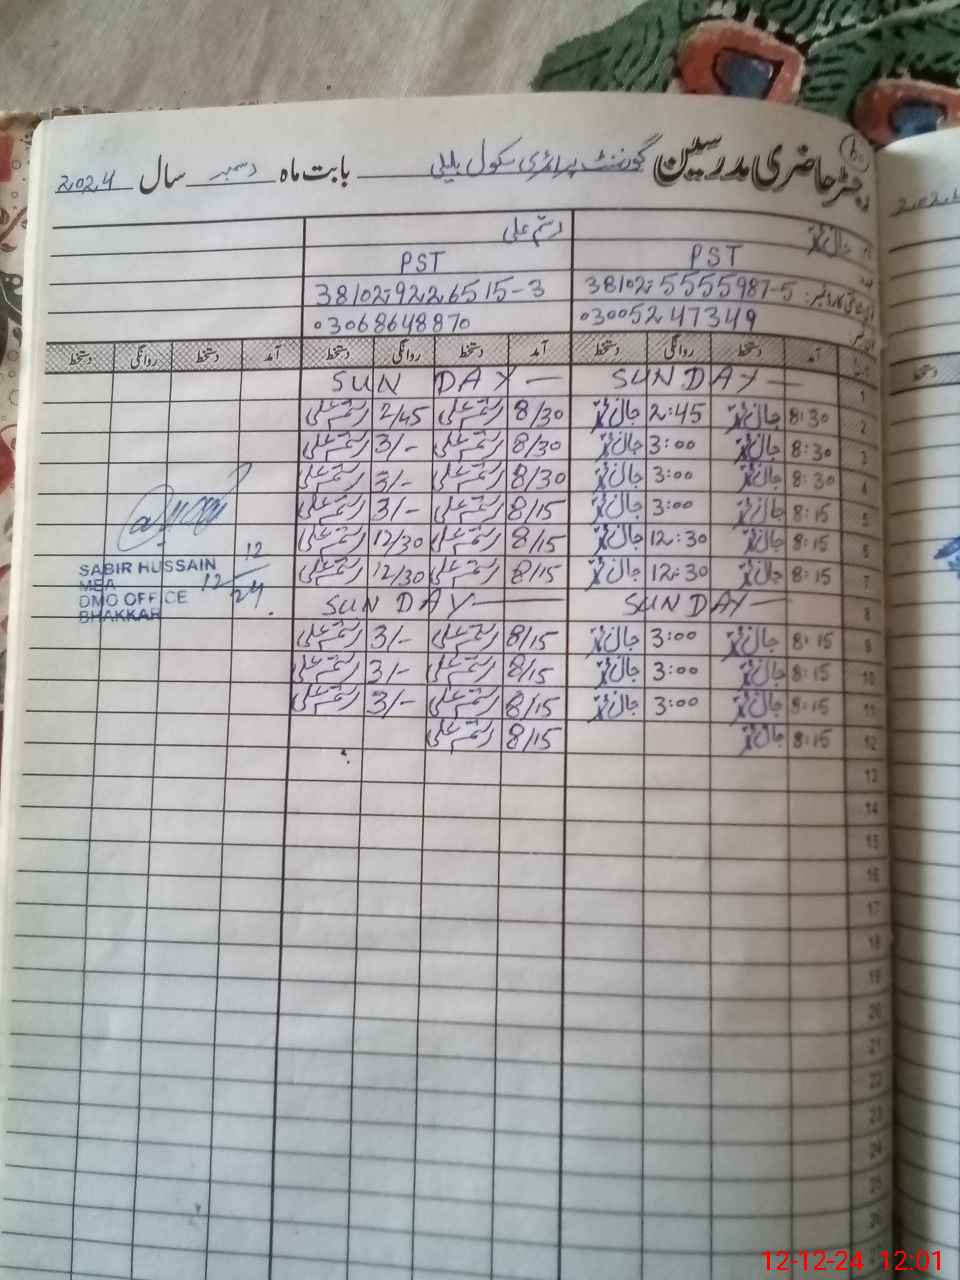 60
رجسٹر حاضری مدرسین گورنمنٹ پرائمری سکول بابت ماہ دسمبر سال 2024
نام جان محمد رستم علی
عہدہ PST PST
شناختی کارڈ نمبر: 38102-5555987-5 38102-9226515-3
فون نمبر 03005247349 03068648870
تاریخ آمد دستخط روانگی دستخط آمد دستخط روانگی دستخط آمد دستخط روانگی دستخط
1 SUNDAY — SUN DAY —
2 8:30 2:45 8/30 رستم علی 2/45 رستم علی
3 8:30 3:00 8/30 رستم علی 3/- رستم علی
4 8:30 3:00 8/30 رستم علی 3/- رستم علی
5 8:15 3:00 8/15 رستم علی 3/- رستم علی
6 8:15 12:30 8/15 رستم علی 12/30 رستم علی
7 8:15 12:30 8/15 رستم علی 12/30 رستم علی
8 SUNDAY — SUN DAY —
9 8:15 3:00 8/15 رستم علی 3/- رستم علی
10 8:15 3:00 8/15 رستم علی 3/- رستم علی
11 8:15 3:00 8/15 رستم علی 3/- رستم علی
12 8:15 8/15 رستم علی
13
14
15
16
17
18
19
20
21
22
23
24
25
26
SABIR HUSSAIN
MEA
DMO OFFICE
BHAKKAR
12
12
24
2024
دستخط
12-12-24 12:01